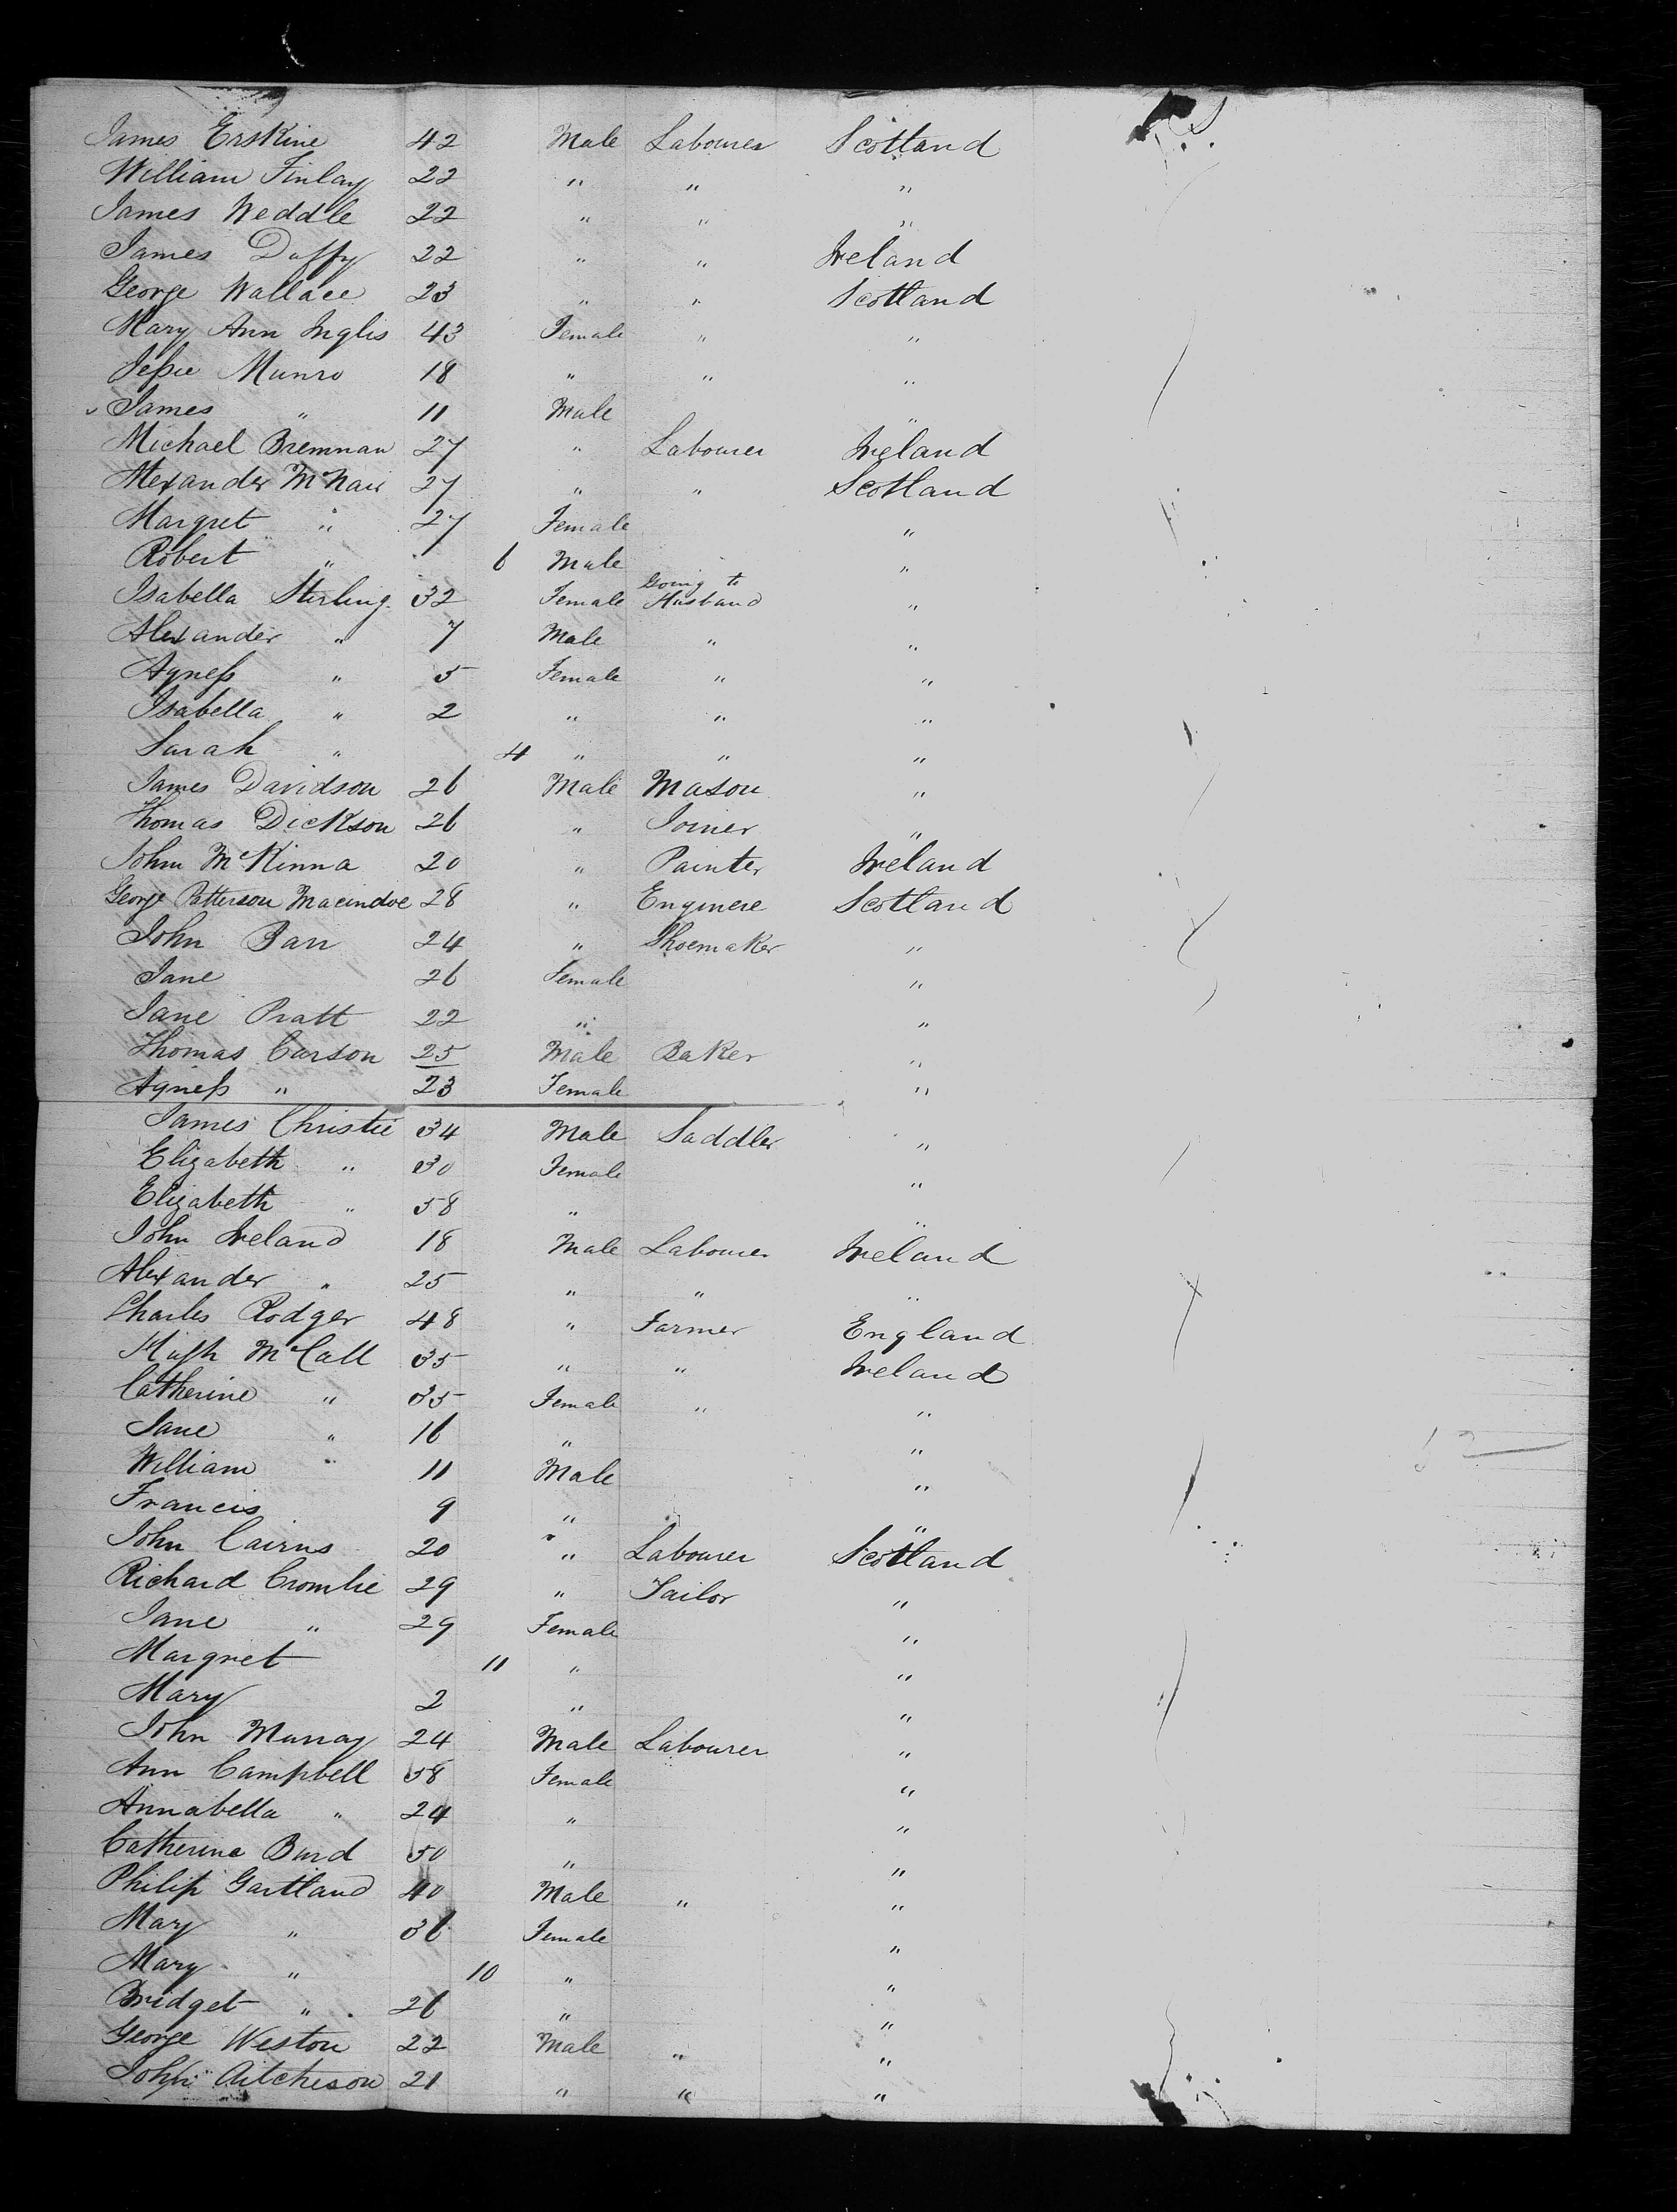 James Erskine 42 Male Labourer Scotland
William Finlay 22 " " "
James Weddle 22 " " "
James Duffy 22 " " Ireland
George Wallace 23 " " Scotland
Mary Ann Inglis 43 Female " "
Jessie Munro 18 " " "
James " 11 Male "
Michael Bremnan 27 " Labourer Ireland
Alexander McNair 27 " " Scotland
Margret " 27 Female "
Robert " 6 Male "
Isabella Stirling 32 Female Going to Husband "
Alexander " 7 Male " "
Agness " 5 Female " "
Isabella " 2 " " "
Sarah " 4 " " "
James Davidson 26 Male Mason "
Thomas Dickson 26 " Joiner "
John McKinna 20 " Painter Ireland
George Patterson Macindoe 28 " Enginere Scotland
John Barr 24 " Shoemaker "
Jane 26 Female "
Jane Pratt 22 " "
Thomas Carson 25 Male Baker "
Agness " 23 Female "
James Christie 34 Male Saddler "
Elizabeth " 30 Female "
Elizabeth " 58 " "
John Ireland 18 Male Labourer Ireland
Alexander " 25 " " "
Charles Rodger 48 " Farmer England
Hugh McCall 35 " " Ireland
Catherine " 35 Female " "
Jane " 16 " "
William " 11 Male "
Francis 9 " "
John Cairns 20 " Labourer Scotland
Richard Crombie 29 " Tailor "
Jane " 29 Female "
Margret 11 " "
Mary 2 " "
John Murray 24 Male Labourer "
Ann Campbell 58 Female "
Annabella " 24 " "
Catherine Burd 50 " "
Philip Gartland 40 Male " "
Mary " 36 Female "
Mary " 10 " "
Bridget " 26 " "
George Weston 22 Male " "
John Aitcheson 21 " " "